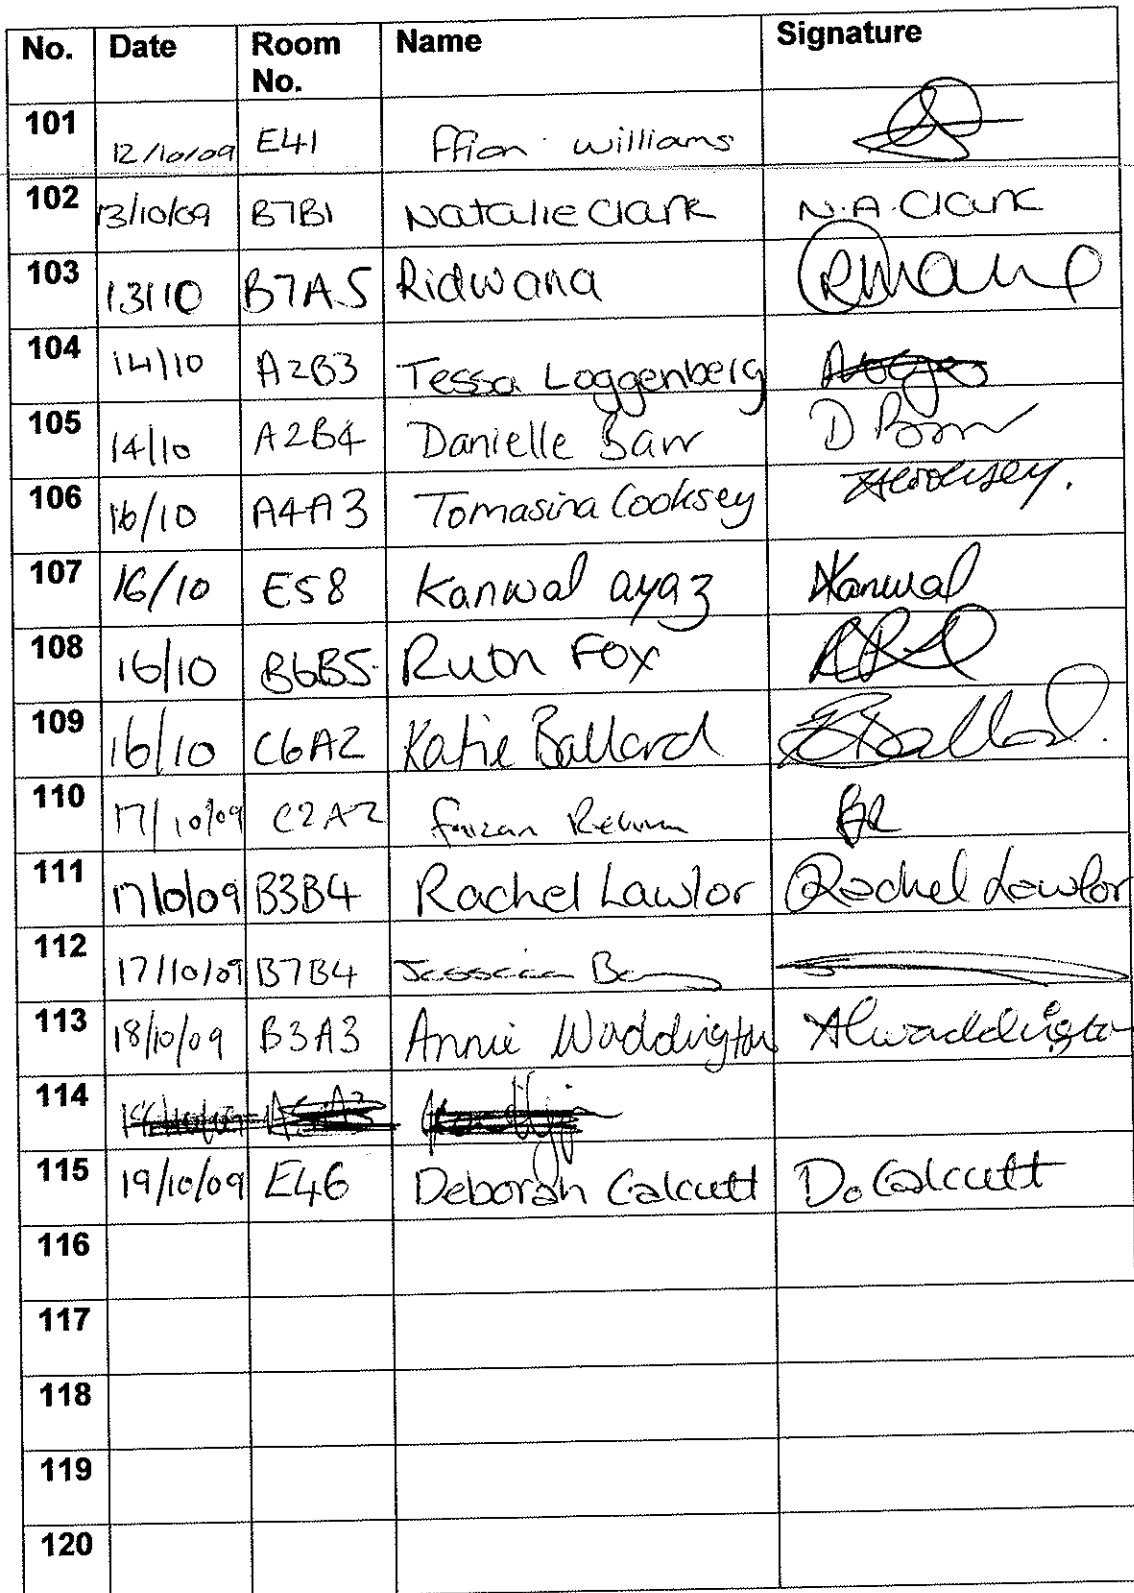 No. Date Room No. Name Signature
101 12/10/09 E41 Ffion Williams
102 13/10/09 B7B1 Natalie Clark N.A. Clark
103 13/10 B7A5 Ridwana
104 14/10 A2B3 Tessa Loggenberg
105 14/10 A2B4 Danielle Barr D Barr
106 16/10 A4A3 Tomasina Cooksey
107 16/10 E58 Kanwal ayaz Kanwal
108 16/10 B6B5 Ruth Fox
109 16/10 C6A2 Katie Ballard Ballard.
110 17/10/09 C2A2 Faizan
111 17/10/09 B3B4 Rachel Lawlor Rachel Lawlor
112 17/10/09 B7B4 Jessica
113 18/10/09 B3A3 Annie Waddington Waddington
114
115 19/10/09 E46 Deborah Calcutt D. Calcutt
116
117
118
119
120